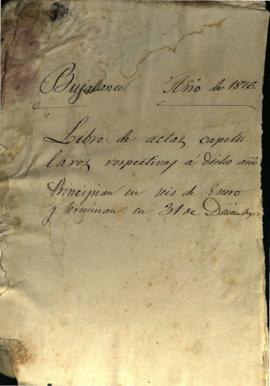 Bujalance Año de 1876.
Libro de actas capitu
lares respectivas á dicho año
Principian en seis de Enero
y terminan en 31 de Diciembre